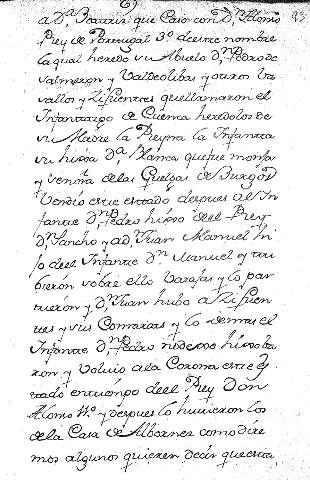 a D.ª Beatriz que Caso con D.n Alonso
Rey de Portugal 3.º de este nombre
la qual heredo su Abuelo D.n Pedro de
Valmeron y Valdeolibas y otros Va
sallos y Zifuentes que llamaron el
Infantazgo de Cuenca heredolos de
su Madre la Reyna la Infanta
su hixa D.ª Blanca que fue monja
y señora de las Guelgas de Burgos
Vendio este estado despues al In
fante D.n Pedro hixo del Rey
D.n Sancho y a D. Juan Manuel hi
jo del Infante D.n Manuel y tu
bieron sobre ello Varajas y lo par
tieron y D.n Juan hubo a Zifuen
tes y sus Comarcas y lo demas el
Infante D.n Pedro no dexo hixo ba
ron y Volvio a la Corona este Es
tado en tiempo del Rey Don
Alonso y despues lo huvieron los
de la Casa de Albornoz como dire
mos algunos quieren decir que esta